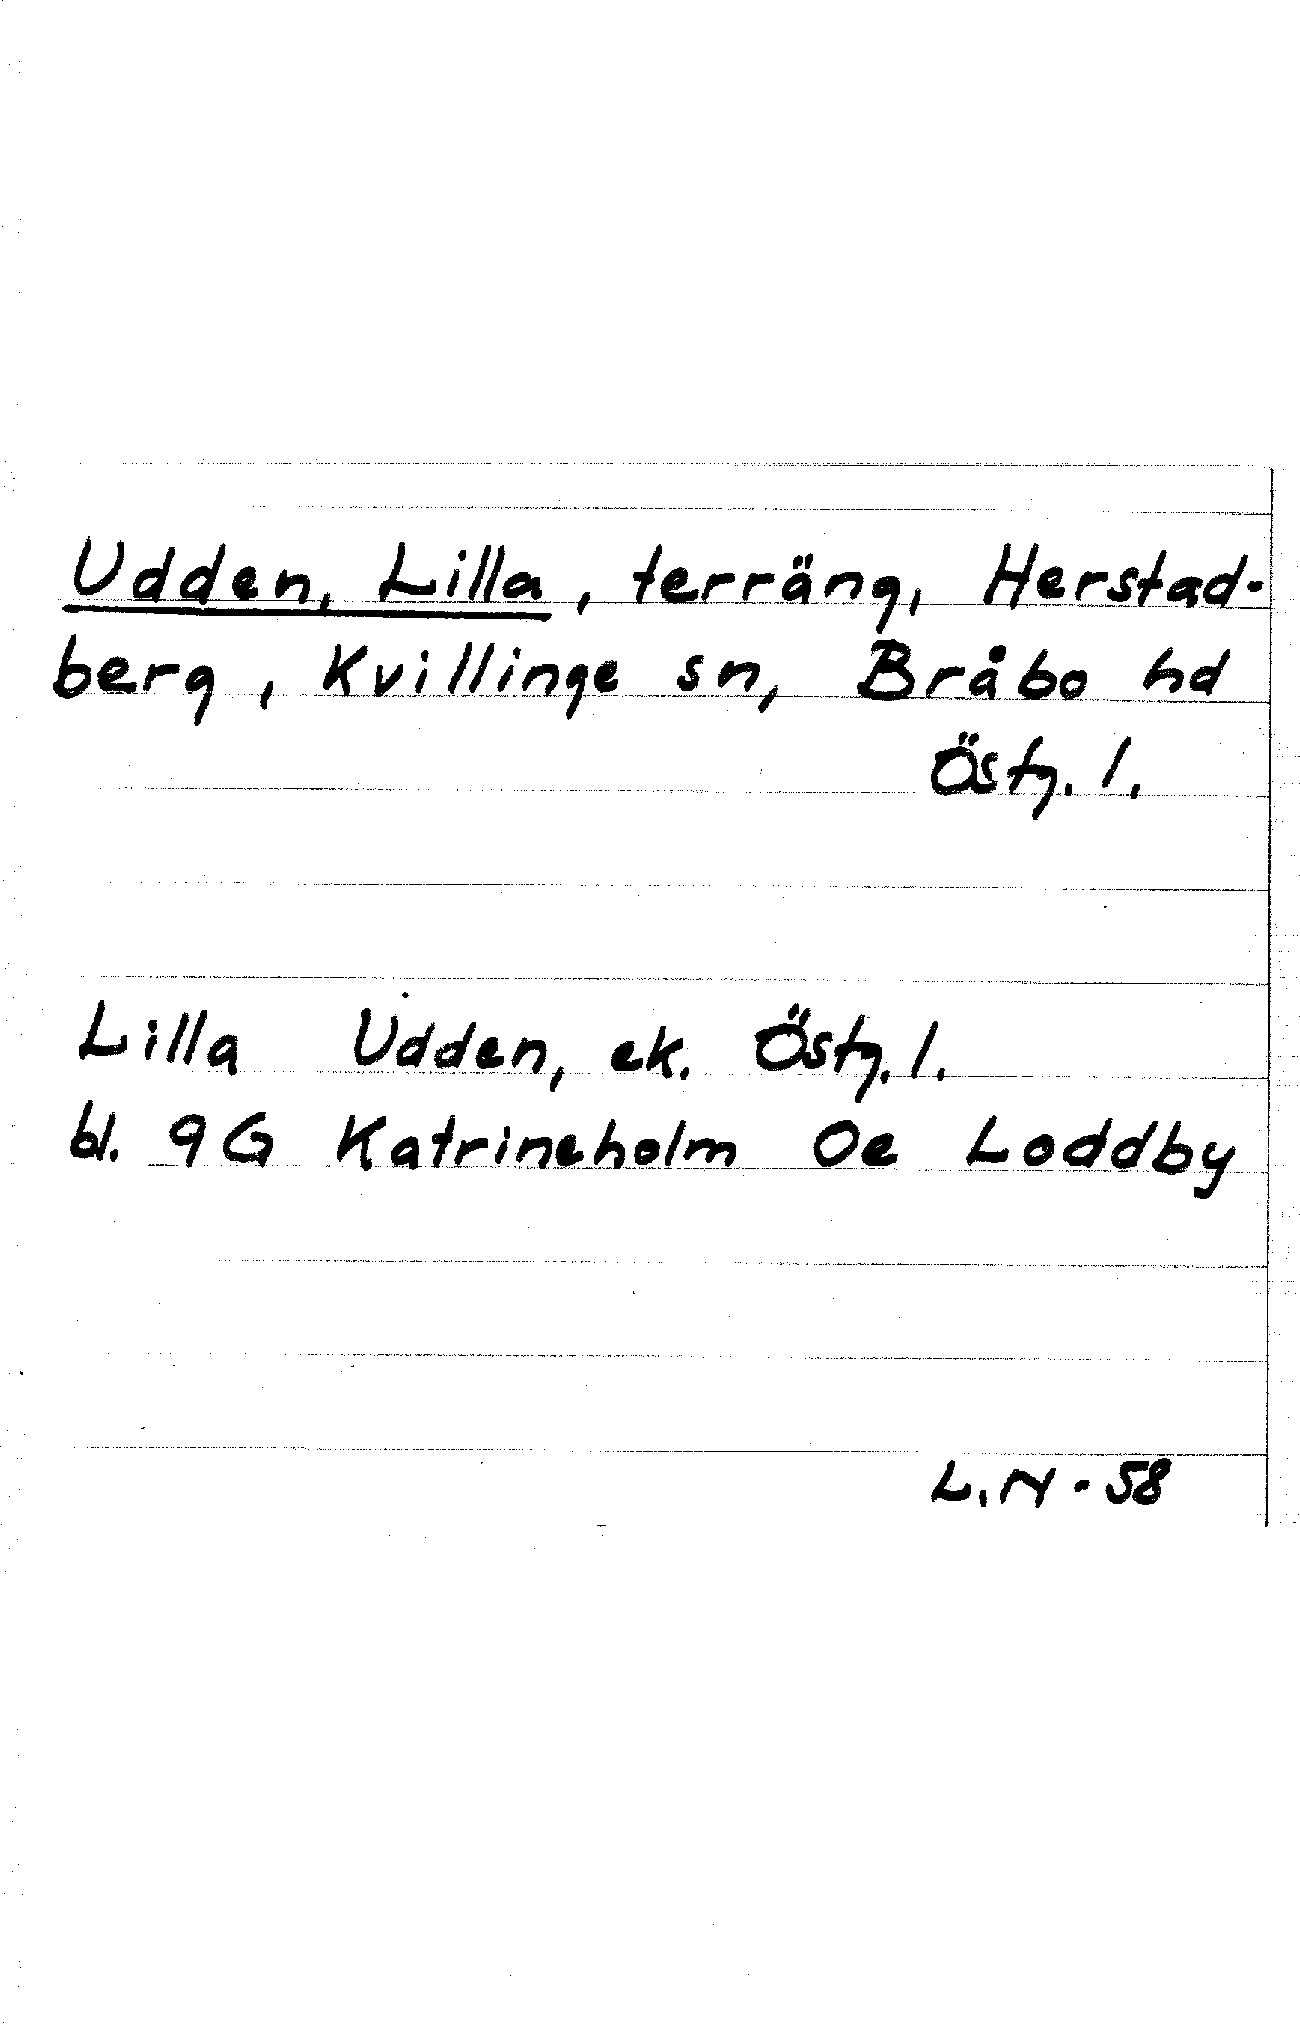 Udden, Lilla, terräng, Herstad-
berg, Kvillinge sn, Bråbo hd
Östg. l.
Lilla Udden, ek. Östg. l.
bl. 9G Katrineholm Oe Loddby
L.N - 58